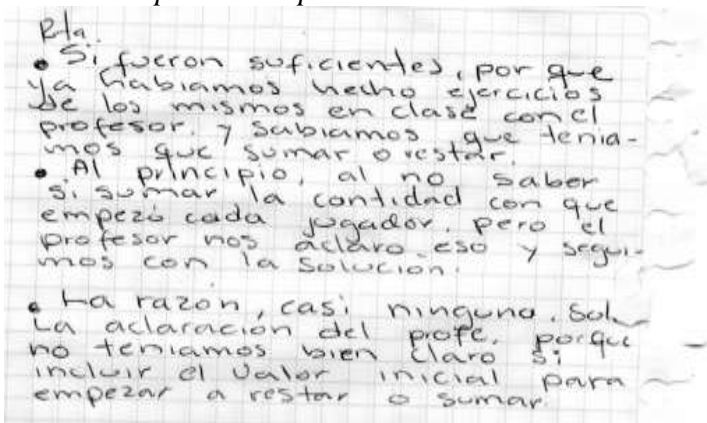 Rta.
• Si fueron suficientes, por que
ya habiamos hecho ejercicios
de los mismos en clase con el
profesor. y sabiamos que tenia-
mos que sumar o restar.
• Al principio, al no saber
si sumar la cantidad con que
empezó cada jugador. pero el
profesor nos aclaro eso y segui-
mos con la solución.
• La razón, casi ninguna. Solo
La aclaración del profe. porque
no teniamos bien claro si
incluir el valor inicial para
empezar a restar o sumar.